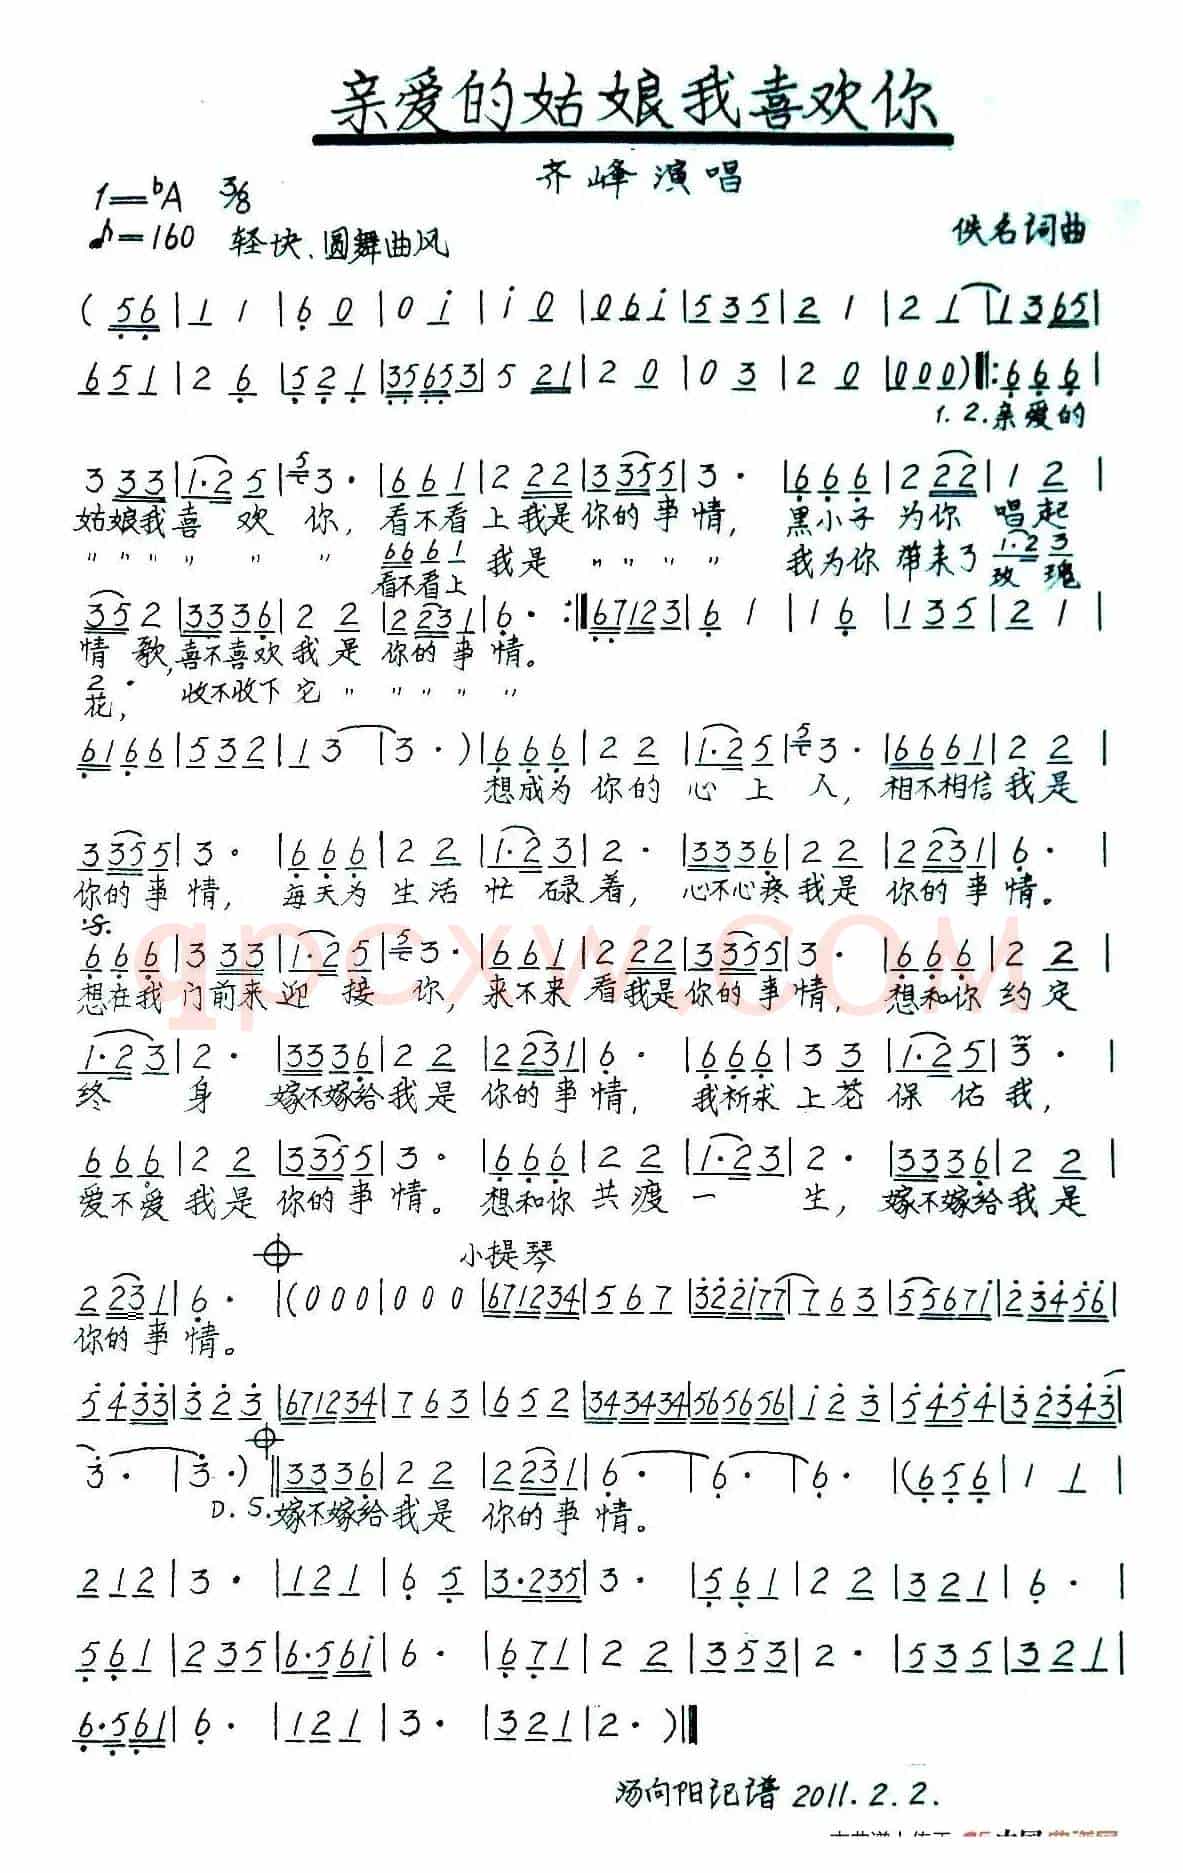 亲爱的姑娘我喜欢你
齐峰演唱
1=♭A 3/8
♪=160 轻快、圆舞曲风
佚名词曲
(56|1 1|6 0|0 i|i 0|06i|535|2 1|2 1|1365|
651|2 6|521|35653|5 21|2 0|0 3|2 0|000)‖:666|
1.2.亲爱的
3 33|1·25|3·|661|2 22|3355|3·|666|2 22|1 2|
姑娘我喜欢你，看不看上我是你的事情，黑小子为你唱起
〃〃〃〃〃〃 6661 我是〃〃〃〃 我为你带来了 1·23
看不看上 玫瑰
352|3336|2 2|2231|6·:‖67123|6 1|1 6|135|2 1|
情歌，喜不喜欢我是你的事情。
2·
花， 收不收下它〃〃〃〃〃
6166|532|13|3·)|666|2 2|1·25|3·|6661|2 2|
想成为你的心上人，相不相信我是
3355|3·|666|2 2|1·23|2·|3336|2 2|2231|6·|
你的事情，每天为生活忙碌着，心不心疼我是你的事情。
666|3 33|1·25|3·|661|2 22|3355|3·|666|2 2|
想在我门前来迎接你，来不来看我是你的事情，想和你约定
1·23|2·|3336|2 2|2231|6·|666|3 3|1·25|3·|
终身嫁不嫁给我是你的事情，我祈求上苍保佑我，
666|2 2|3355|3·|666|2 2|1·23|2·|3336|2 2|
爱不爱我是你的事情。想和你共渡一生，嫁不嫁给我是
小提琴
2231|6·|(000|000|671234|567|322177|763|55671|23456|
你的事情。
5433|323|671234|763|652|343434|565656|123|5454|32343|
3·|3·)‖3336|2 2|2231|6·|6·|6·|(656|1 1|
D.S.嫁不嫁给我是你的事情。
212|3·|121|6 5|3·235|3·|561|2 2|321|6·|
561|235|6·56i|6·|671|2 2|353|2·|535|321|
6·561|6·|121|3·|321|2·)‖
汤向阳记谱 2011.2.2.
qpcxw.COM